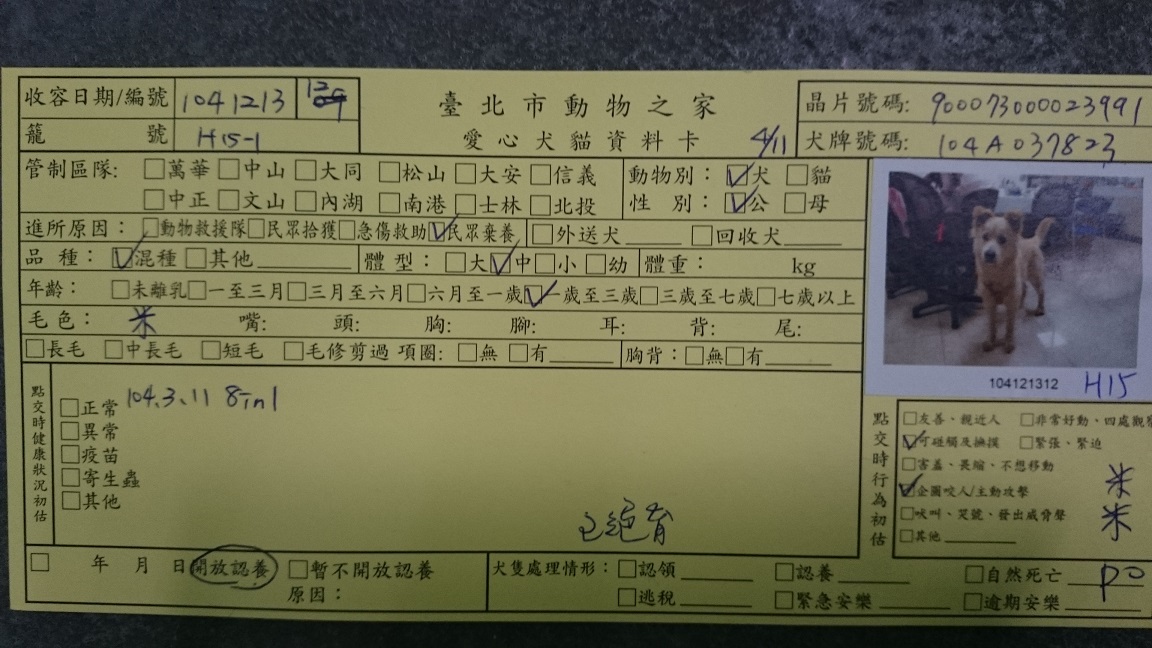 收容日期/編號 1041213 12
臺北市動物之家
晶片號碼: 900073000023991
籠 號 H15-1
愛心犬貓資料卡 4/11
犬牌號碼: 104A037823
管制區隊: □萬華□中山□大同 □松山□大安□信義
□中正□文山□內湖 □南港□士林□北投
動物別: ☑犬 □貓
性 別: ☑公 □母
進所原因: □動物救援隊□民眾拾獲□急傷救助☑民眾棄養 □外送犬____ □回收犬____
品 種: ☑混種□其他____ 體 型: □大☑中□小 □幼 體重: kg
年齡: □未離乳□一至三月□三月至六月□六月至一歲☑一歲至三歲□三歲至七歲□七歲以上
毛色: 米 嘴: 頭: 胸: 腳: 耳: 背: 尾:
□長毛 □中長毛 □短毛 □毛修剪過 項圈: □無 □有____ 胸背: □無□有____
104121312 H15
點交時健康狀況初估
□正常 104.3.11 8in1
□異常
□疫苗
□寄生蟲
□其他
已絕育
點交時行為初估
□友善、親近人 □非常好動、四處觀察
☑可碰觸及撫摸 □緊張、緊迫
□害羞、畏縮、不想移動
☑企圖咬人/主動攻擊 米
□吠叫、哭號、發出威脅聲 米
□其他____
□ 年 月 日開放認養 □暫不開放認養
原因:
犬隻處理情形: □認領____ □認養____ □自然死亡____
□逃稅____ □緊急安樂____ □逾期安樂____